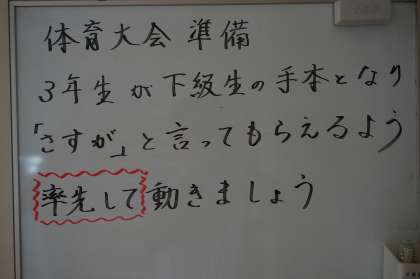 体育大会 準備
3年生が下級生の手本となり
「さすが」と言ってもらえるよう
率先して動きましょう